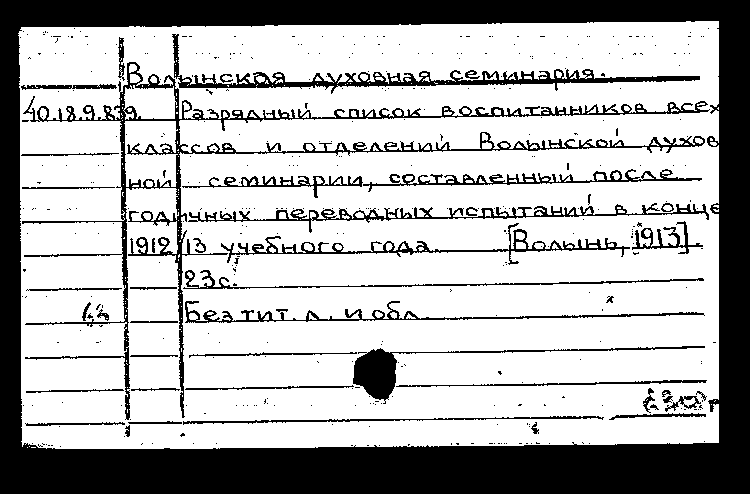 Волынская духовная семинария.
40.18.9.839. Разрядный список воспитанников всех
классов и отделений Волынской духов
ной семинарии, составленный после
годичных переводных испытаний в конце
1912/13 учебного года. [Волынь, 1913].
23с.
Без тит. л. и обл.